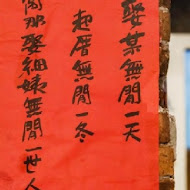 娶某無閒一天
起厝無閒一冬
那娶細姨無閒一世人